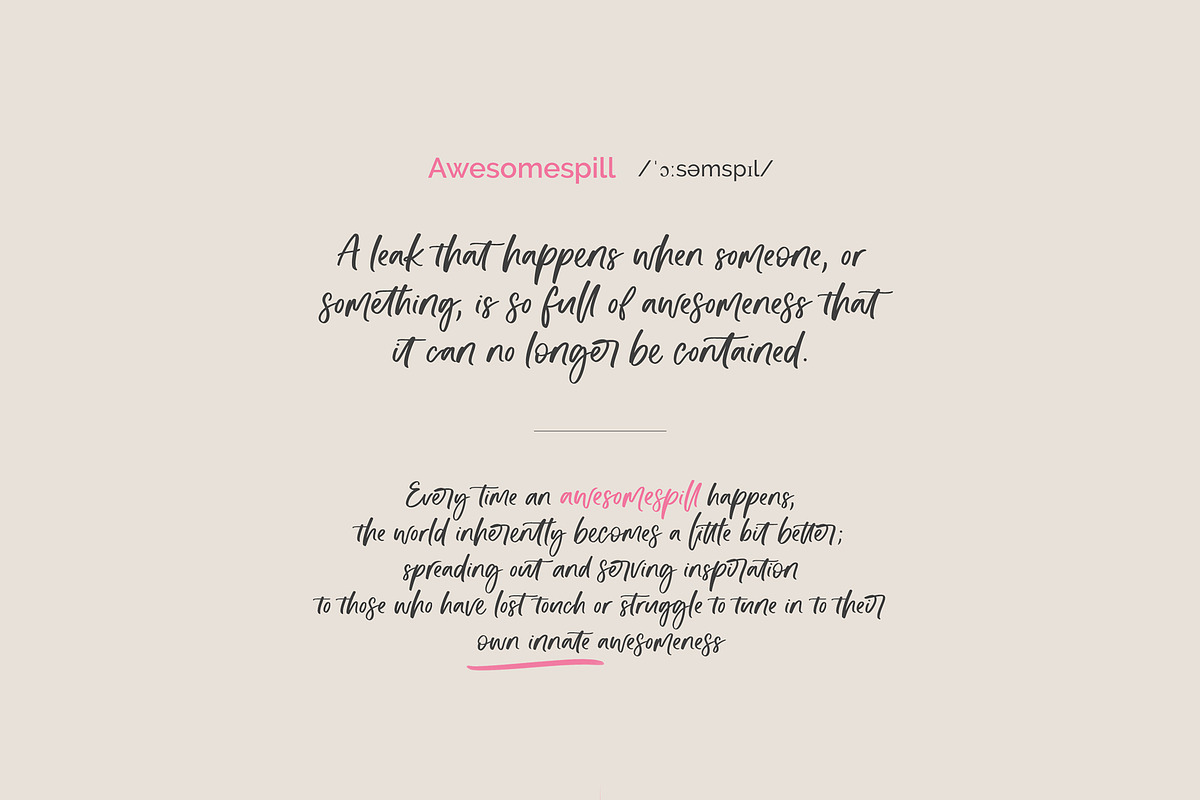 Awesomespill /ˈɔːsəmspɪl/
A leak that happens when someone, or
something, is so full of awesomeness that
it can no longer be contained.
Every time an awesomespill happens,
the world inherently becomes a little bit better;
spreading out and serving inspiration
to those who have lost touch or struggle to tune in to their
own innate awesomeness